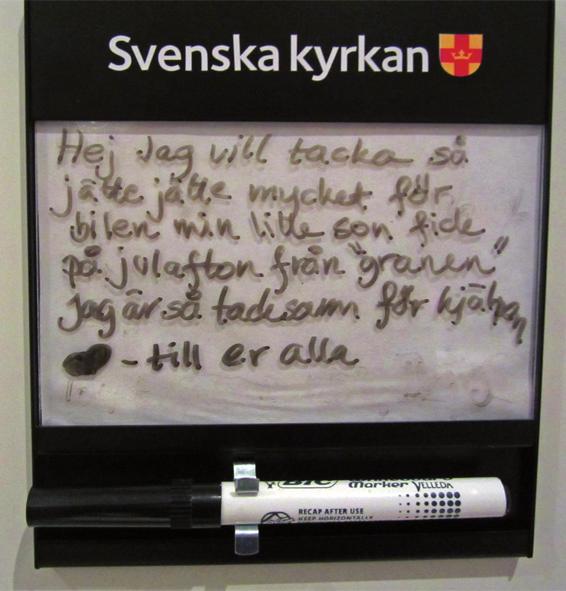 Svenska kyrkan
Hej Jag vill tacka så
jätte jätte mycket för
bilen min lille son fide
på julafton från "granen"
Jag är så tacksam för hjälpen
- till er alla
BIC
Marker VELLEDA
RECAP AFTER USE
KEEP HORIZONTALLY